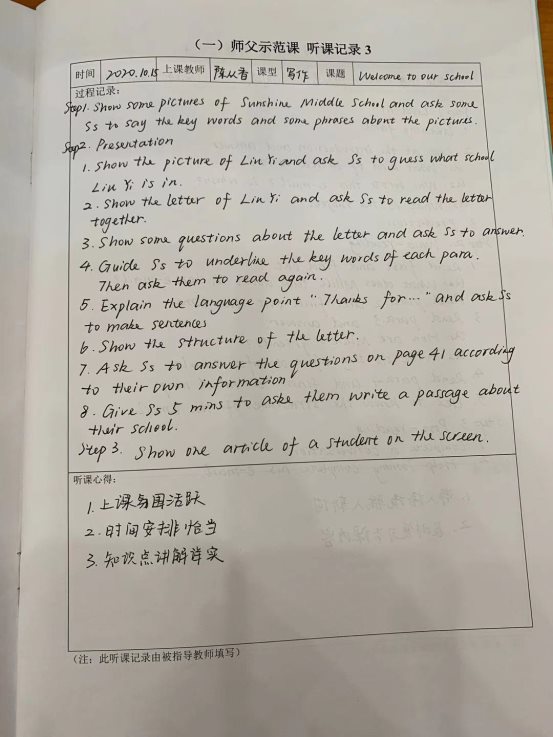 （一）师父示范课 听课记录 3
时间 2020.10.15 上课教师 陈从香 课型 写作 课题 Welcome to our school
过程记录：
Step1. Show some pictures of Sunshine Middle School and ask some
Ss to say the key words and some phrases about the pictures.
Step2. Presentation
1. Show the picture of Lin Yi and ask Ss to guess what school
Lin Yi is in.
2. Show the letter of Lin Yi and ask Ss to read the letter
together.
3. Show some questions about the letter and ask Ss to answer.
4. Guide Ss to underline the key words of each para.
Then ask them to read again.
5. Explain the language point "Thanks for..." and ask Ss
to make sentences
6. Show the structure of the letter.
7. Ask Ss to answer the questions on page 41 according
to their own information
8. Give Ss 5 mins to aske them write a passage about
their school.
Step 3. Show one article of a student on the screen.
听课心得：
1. 上课氛围活跃
2. 时间安排恰当
3. 知识点讲解详实
（注：此听课记录由被指导教师填写）